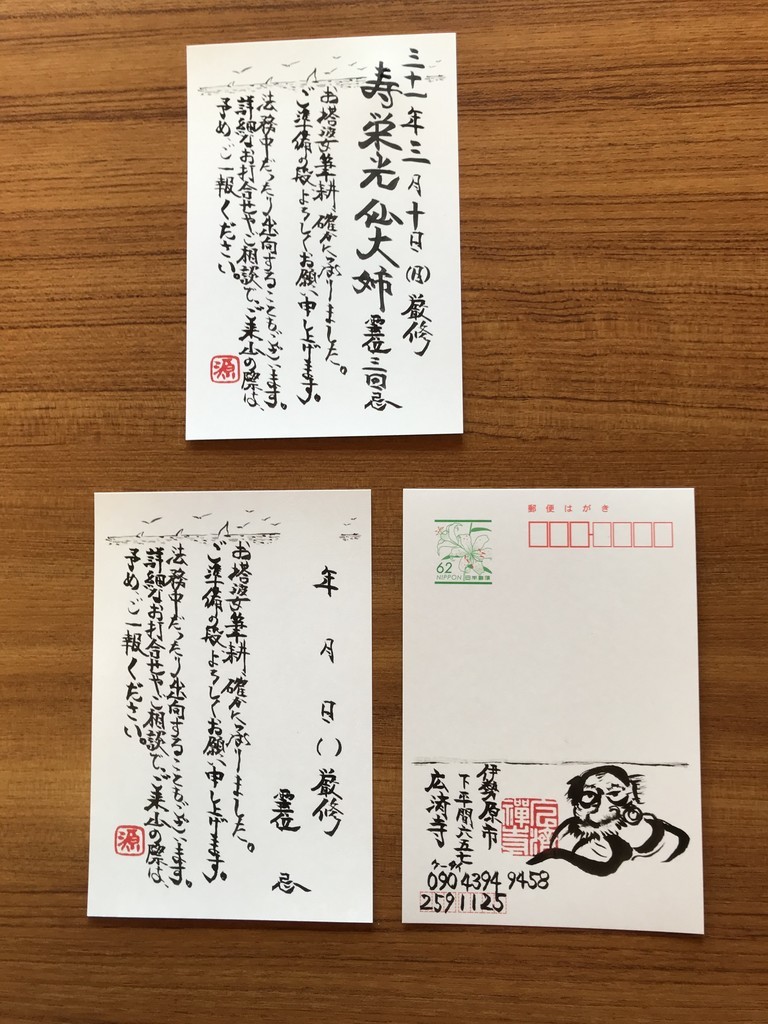 三十一年三月十日(月)厳修
寿栄光仙大姉
霊位三回忌
お塔婆筆耕、確かに承りました。
ご準備の段よろしくお願い申し上げます。
法務中だったり出向することもございます。
詳細なお打合せやご相談で、ご来山の際は、
予め、ご一報ください。
源
年 月 日( )厳修
霊位 忌
お塔婆筆耕、確かに承りました。
ご準備の段よろしくお願い申し上げます。
法務中だったり出向することもございます。
詳細なお打合せやご相談で、ご来山の際は、
予め、ご一報ください。
源
郵便はがき
62
NIPPON 日本郵便
伊勢原市
下平間六五七
広済寺
広済
禅寺
ケータイ
090 4394 9458
2591125